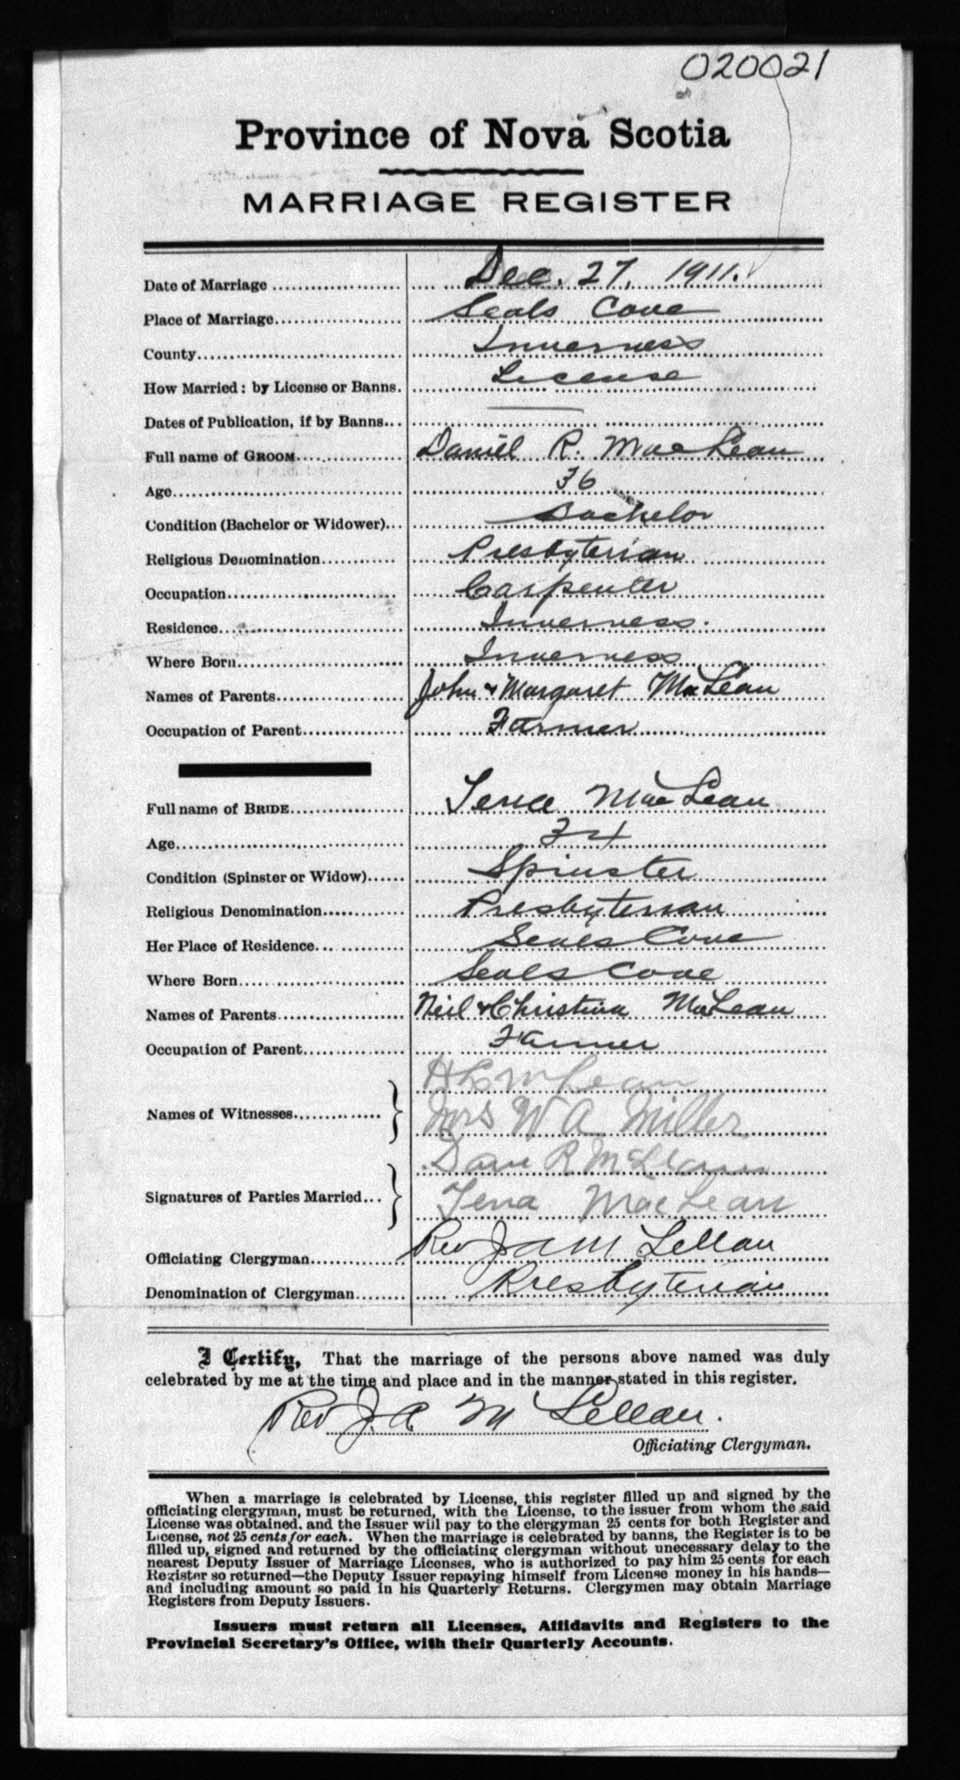 020021
Province of Nova Scotia
MARRIAGE REGISTER
Date of Marriage Dec. 27, 1911.
Place of Marriage Seals Cove
County Inverness
How Married: by License or Banns. License
Dates of Publication, if by Banns... —
Full name of GROOM Daniel R. MacLean
Age 36
Condition (Bachelor or Widower)... Bachelor
Religious Denomination Presbyterian
Occupation Carpenter
Residence Inverness.
Where Born Inverness
Names of Parents John & Margaret MacLean
Occupation of Parent Farmer
Full name of BRIDE Tena MacLean
Age 34
Condition (Spinster or Widow) Spinster
Religious Denomination Presbyterian
Her Place of Residence Seals Cove
Where Born Seals Cove
Names of Parents Neil & Christina McLean
Occupation of Parent Farmer
McLean
Names of Witnesses Mrs W A Miller
Dan R McLean
Signatures of Parties Married... Tena MacLean
Officiating Clergyman Rev J A McLellan
Denomination of Clergyman Presbyterian
I Certify, That the marriage of the persons above named was duly
celebrated by me at the time and place and in the manner stated in this register.
Rev J. A. McLellan.
Officiating Clergyman.
When a marriage is celebrated by License, this register filled up and signed by the
officiating clergyman, must be returned, with the License, to the issuer from whom the said
License was obtained, and the Issuer will pay to the clergyman 25 cents for both Register and
License, not 25 cents for each. When the marriage is celebrated by banns, the Register is to be
filled up, signed and returned by the officiating clergyman without unnecessary delay to the
nearest Deputy Issuer of Marriage Licenses, who is authorized to pay him 25 cents for each
Register so returned—the Deputy Issuer repaying himself from License money in his hands—
and including amount so paid in his Quarterly Returns. Clergymen may obtain Marriage
Registers from Deputy Issuers.
Issuers must return all Licenses, Affidavits and Registers to the
Provincial Secretary's Office, with their Quarterly Accounts.